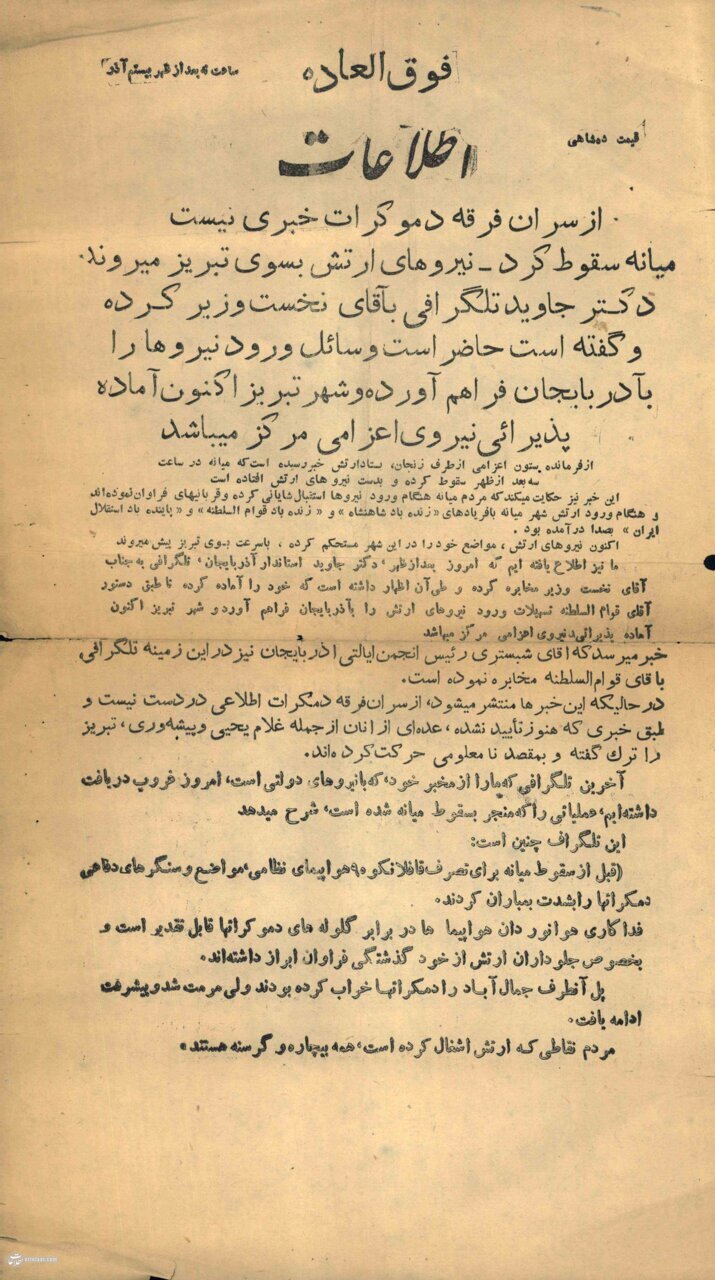 فوق العاده
ساعت نه بعد از ظهر بیستم آذر
قیمت ده شاهی
اطلاعات
از سران فرقه دموکرات خبری نیست
میانه سقوط کرد ـ نیروهای ارتش بسوی تبریز میروند.
دکتر جاوید تلگرافی بآقای نخست وزیر کرده
و گفته است حاضر است وسائل ورود نیروها را
بآذربایجان فراهم آورده و شهر تبریز اکنون آماده
پذیرائی نیروی اعزامی مرکز میباشد
از فرمانده ستون اعزامی از طرف زنجان، بستاد ارتش خبر رسیده است که میانه در ساعت
سه بعد از ظهر سقوط کرده و بدست نیرو های ارتش افتاده است
این خبر نیز حکایت میکند که مردم میانه هنگام ورود نیروها استقبال شایانی کرده و قربانیهای فراوان نموده‌اند
و هنگام ورود ارتش شهر میانه با فریادهای «زنده باد شاهنشاه» و «زنده باد قوام السلطنه» و «پاینده باد استقلال
ایران» بصدا در آمده بود.
اکنون نیروهای ارتش، مواضع خود را در این شهر مستحکم کرده، با سرعت بسوی تبریز پیش میروند
ما نیز اطلاع یافته ایم که امروز بعد از ظهر، دکتر جاوید استاندار آذربایجان، تلگرافی به جناب
آقای نخست وزیر مخابره کرده و طی آن اظهار داشته است که خود را آماده کرده تا طبق دستور
آقای قوام السلطنه تسهیلات ورود نیروهای ارتش را بآذربایجان فراهم آورد و شهر تبریز اکنون
آماده پذیرائی نیروی اعزامی مرکز میباشد
خبر میرسد که اقای شبستری رئیس انجمن ایالتی اذربایجان نیز در این زمینه تلگرافی
باقای قوام السلطنه مخابره نموده است.
در حالیکه این خبرها منتشر میشود، از سران فرقه دمکرات اطلاعی در دست نیست و
طبق خبری که هنوز تأیید نشده، عده‌ای از انان از جمله غلام یحیی و پیشه‌وری، تبریز
را ترك گفته و بمقصد نامعلومی حرکت کرده‌اند.
آخرین تلگرافی که ما را از مخبر خود، که با نیروهای دولتی است، امروز غروب دریافت
داشته‌ایم، عملیاتی را که منجر بسقوط میانه شده است، شرح میدهد
این تلگراف چنین است:
(قبل از سقوط میانه برای تصرف قافلانکوه ۹ هواپیمای نظامی، مواضع و سنگرهای دفاعی
دمکراتها را بشدت بمباران کردند.
فداکاری هوانوردان هواپیما ها در برابر گلوله های دموکراتها قابل تقدیر است و
بخصوص جلوداران ارتش از خود گذشتگی فراوان ابراز داشته‌اند.
پل آنطرف جمال آباد را دمکراتها خراب کرده بودند ولی مرمت شد و پیشرفت
ادامه یافت.
مردم نقاطی که ارتش اشغال کرده است، همه بیچاره و گرسنه هستند»